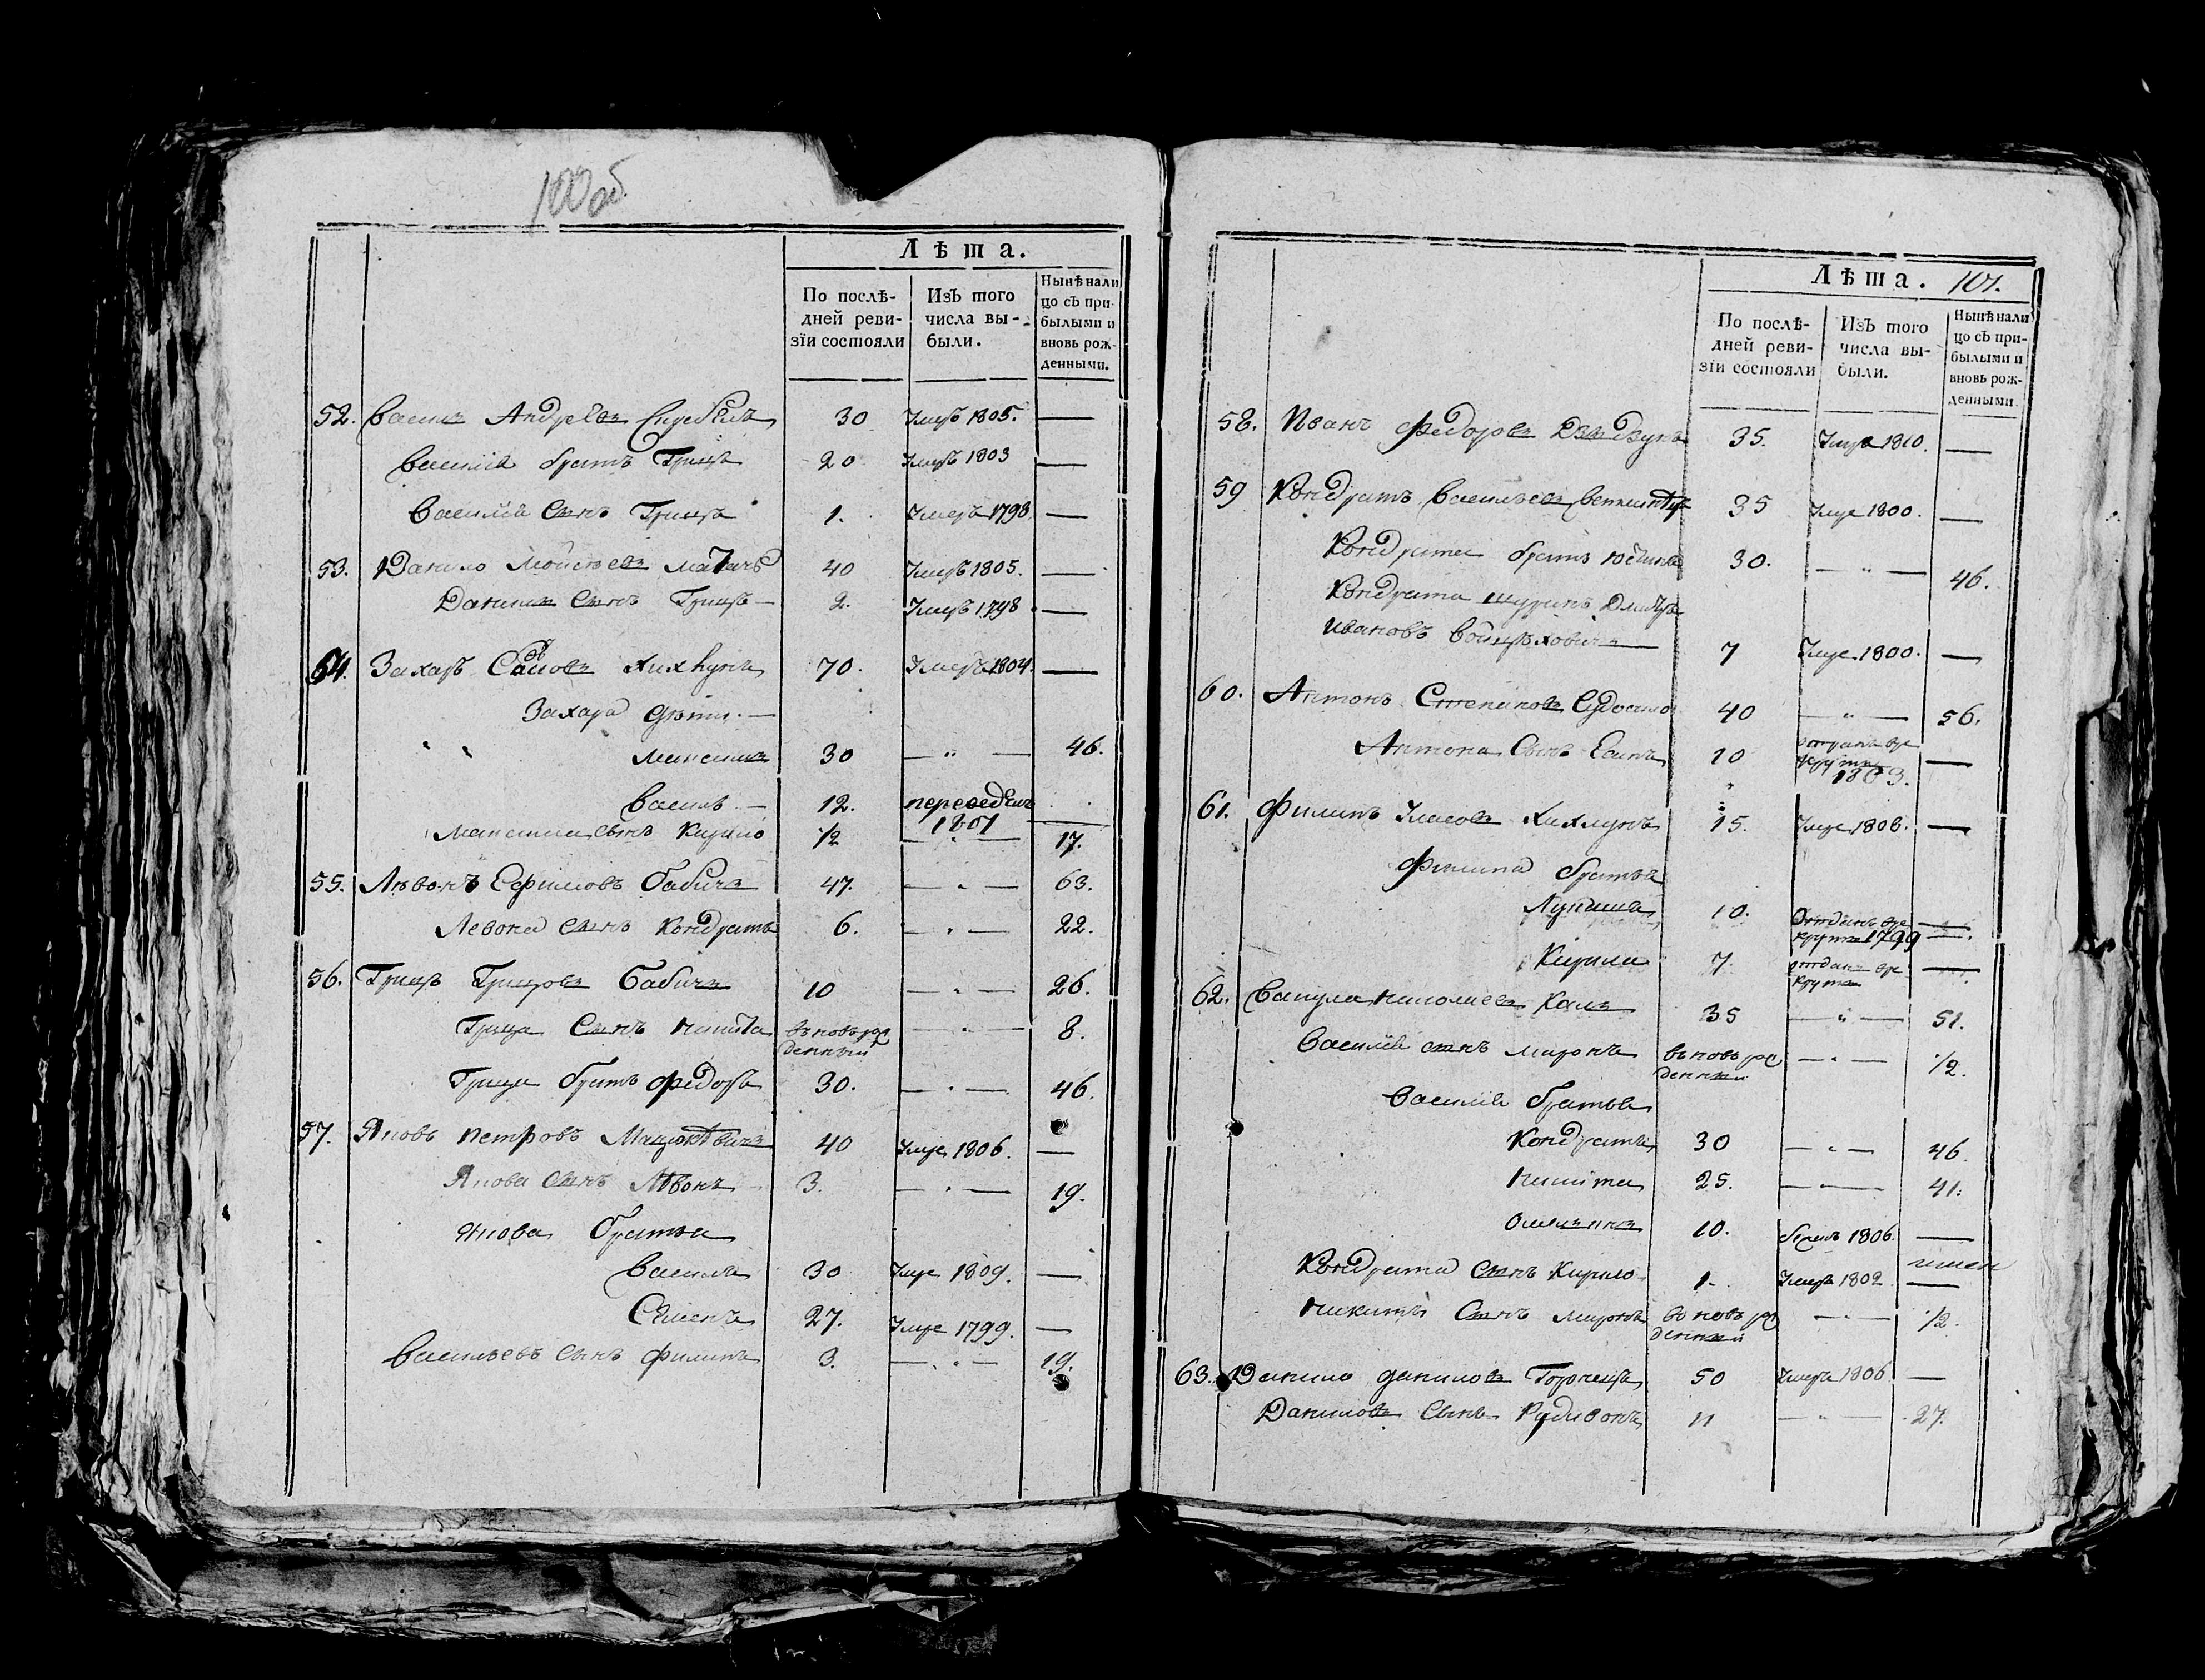 100 об
Лѣта.
По послѣ-
дней реви-
зіи состояли
Изъ того
числа вы-
были.
Нынѣ нали
цо съ при-
былыми и
вновь рож-
денными.
52. Василь Андреевъ 30 Умеръ 1805. —
Василія братъ Грицъ 20 Умеръ 1803 —
Василія сынъ Грицъ 1. Умеръ 1798 —
53. Данило Мойсѣевъ 40 Умеръ 1805. —
Данилы сынъ Грицъ — 2. Умеръ 1798 —
54. Захаръ 70. Умеръ 1804. —
Захара дѣти. —
Максимъ 30 — " — 46.
Василь — 12. переведенъ
1801 —
Максима сынъ Кирило 1/2 — " — 17.
55. Лѣвонъ Ефимовъ Бабичъ 47. — " — 63.
Левона сынъ Кондратъ 6. — " — 22.
56. Грицъ Грицовъ Бабичъ 10 — " — 26.
Грица сынъ Никита вновь ро
денный — " — 8.
Грица братъ Федоръ 30. — " — 46.
57. Яковъ Петровъ 40 Умре 1806. —
Якова сынъ Лѣвонъ 3. — " — 19.
Якова братья
Василь 30 Умре 1809. —
Семенъ 27. Умре 1799. —
Васильевъ сынъ Филипъ 3. — " — 19.
Лѣта. 101.
По послѣ-
дней реви-
зіи состояли
Изъ того
числа вы-
были.
Нынѣ нали
цо съ при-
былыми и
вновь рож-
денными.
58. Иванъ Федоровъ 35. Умре 1810. —
59 Кондратъ Васильевъ 35 Умре 1800. —
Кондрата братъ 30. — " — 46.
Кондрата шуринъ Дмитръ
Ивановъ 7 Умре 1800. —
60. Антонъ Степановъ 40 — " — 56.
Антона сынъ 10 отданъ въ ре
круты
1803. —
61. Филипъ 15. Умре 1808. —
Филипа братья
10. Отданъ въ ре
круты 1799 —
Кирила 7. отданъ въ ре
круты —
62. 35 — " — 51.
Василія сынъ Миронъ вновь ро
денный — " — 1/2.
Василія братья
Кондратъ 30 — " — 46
Никита 25. — " — 41.
10. 1806. —
Кондрата сынъ Кирило 1. Умеръ 1802 —
Никиты сынъ Миронъ вновь ро
денный — " — 1/2.
63. Данило Даниловъ 50 Умеръ 1806 —
Даниловъ сынъ Родивонъ 11 — " — 27.